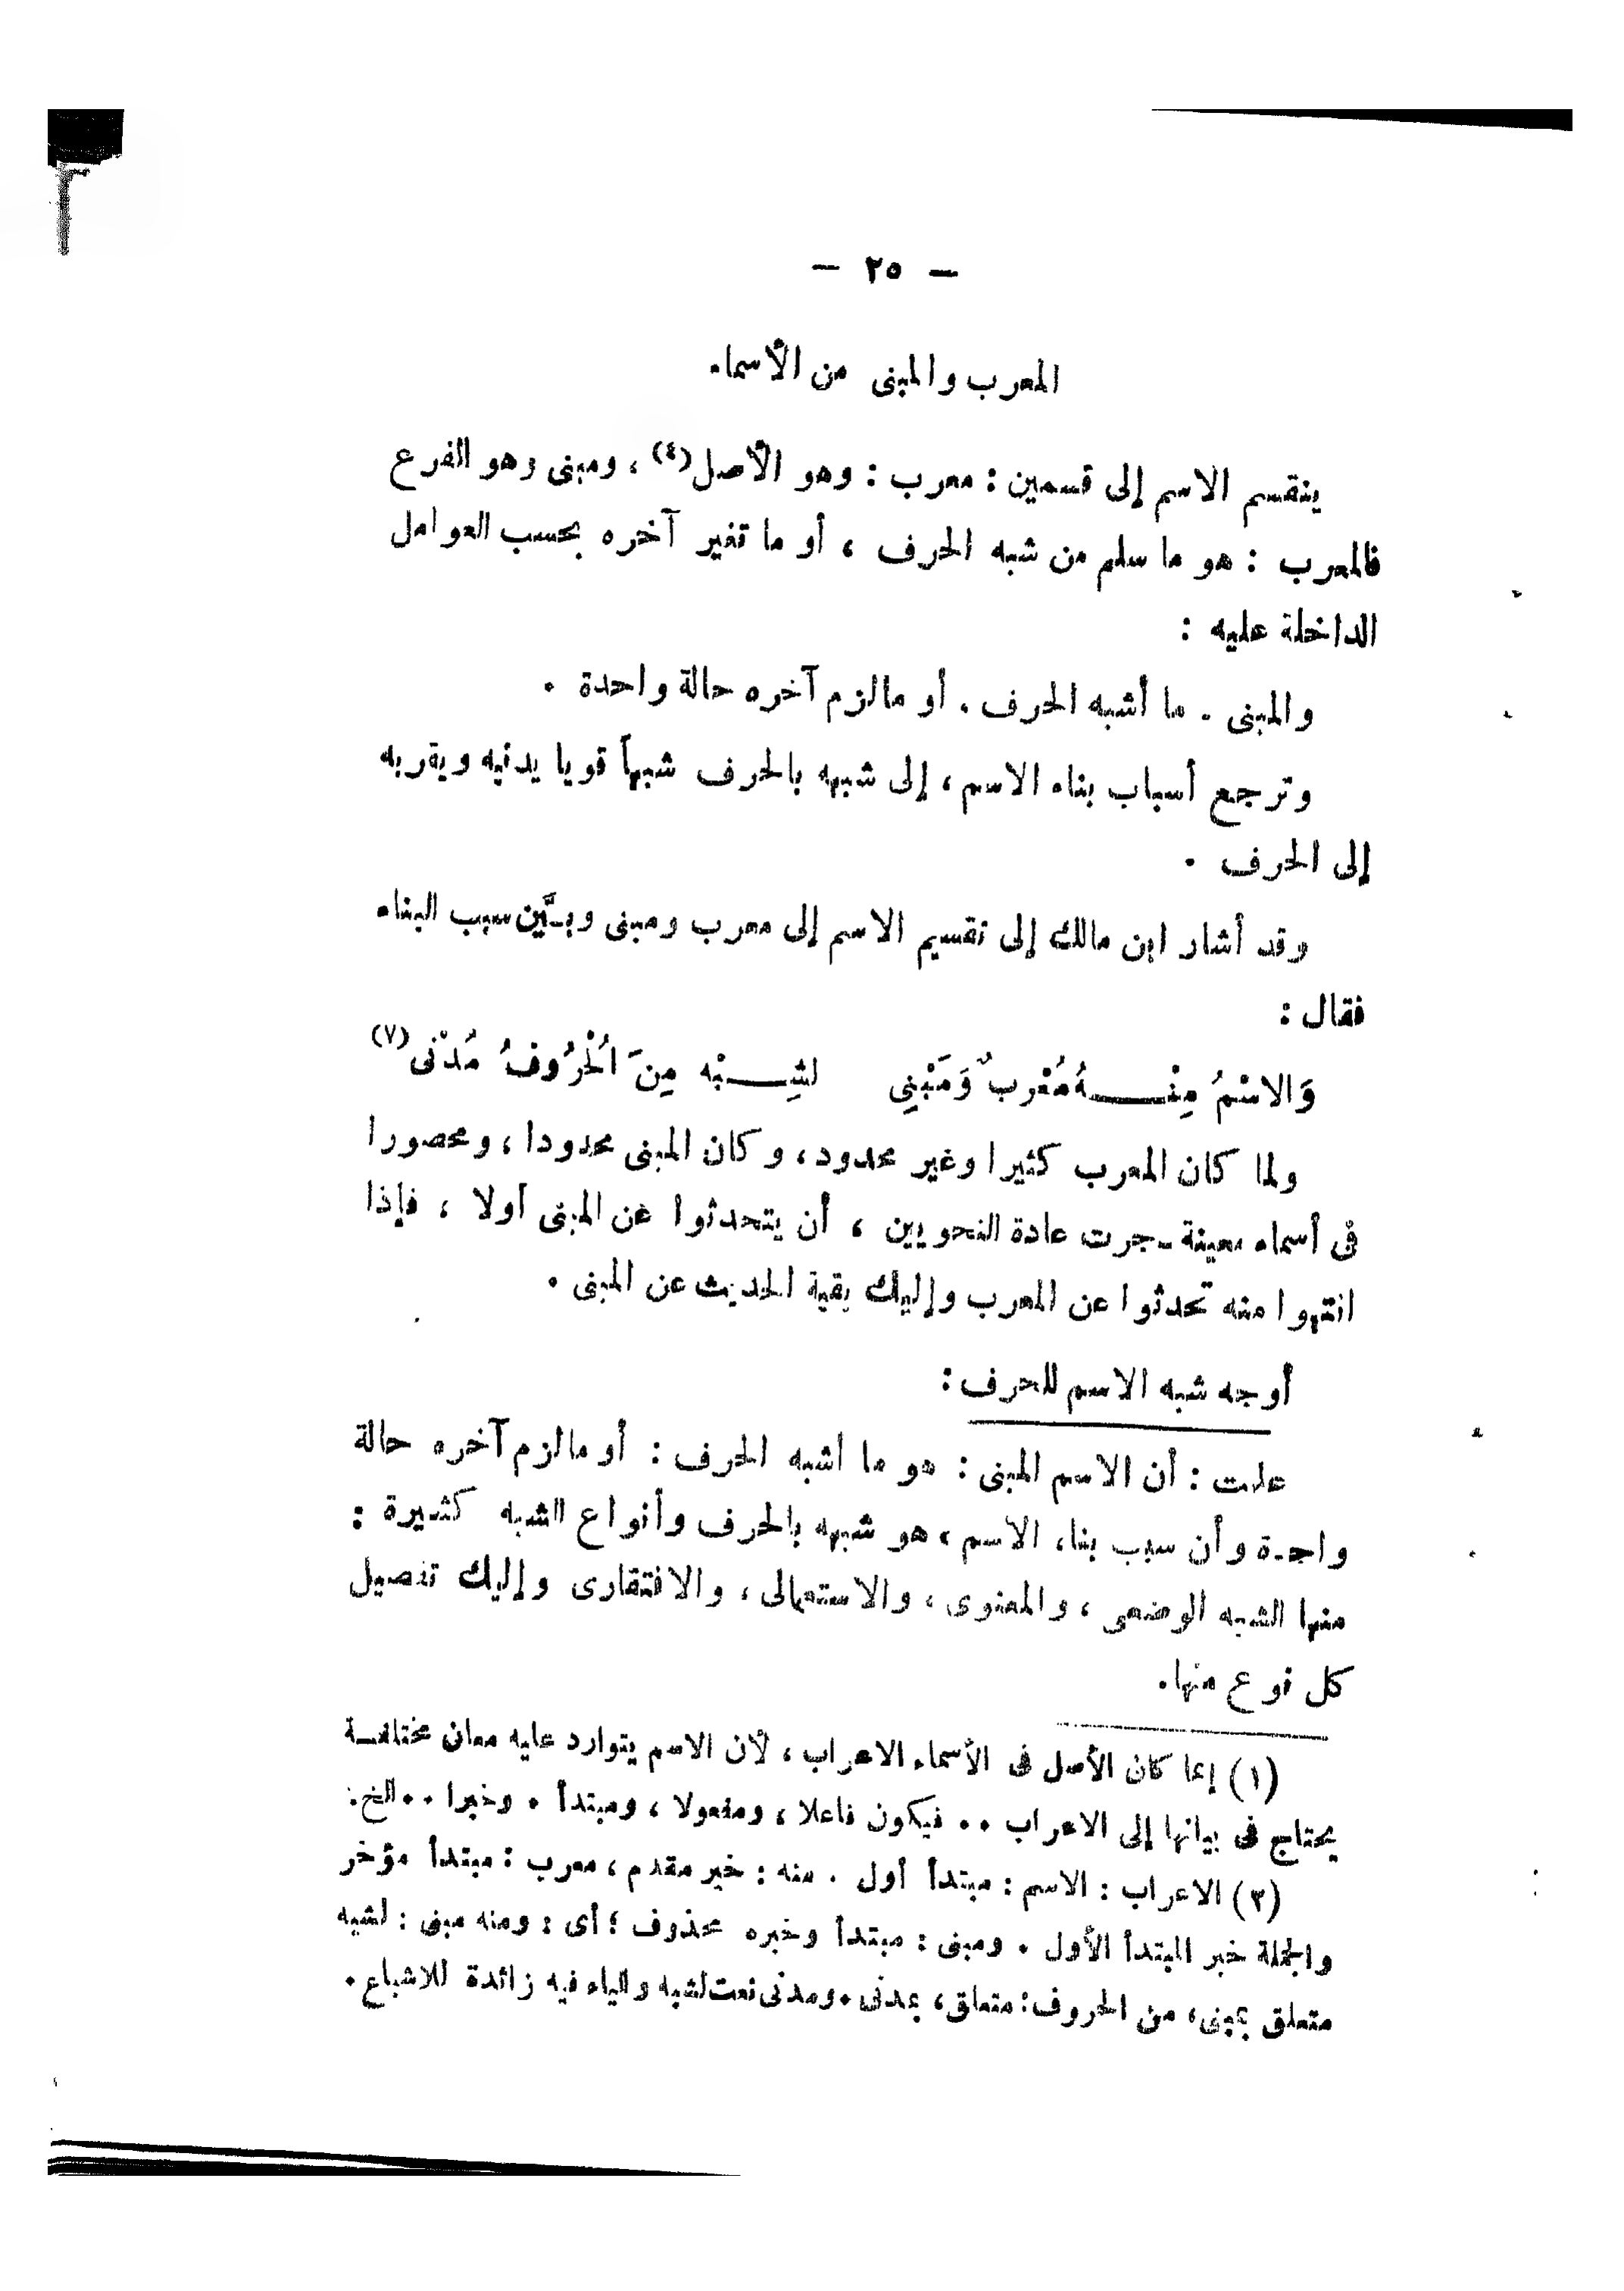 — ٢٥ —
المعرب والمبنى من الأسماء
ينقسم الاسم إلى قسمين : معرب : وهو الأصل(٤) ، ومبنى وهو الفرع
فالمعرب : هو ما سلم من شبه الحرف ، أو ما تغير آخره بحسب العوامل
الداخلة عليه :
والمبنى . ما أشبه الحرف . أو مالزم آخره حالة واحدة .
وترجع أسباب بناء الاسم ، إلى شبهه بالحرف شبهاً قويا يدنيه ويقربه
إلى الحرف .
وقد أشار ابن مالك إلى تقسيم الاسم إلى معرب ومبنى وبـيَّن سبب البناء
فقال :
وَالاسْمُ مِنْـــهُ مُعْرَبٌ وَمَبْنِى لشِـــبْه مِنَ الْحُرُوفُ مُدْنى(٧)
ولما كان المعرب كثيرا وغير محدود ، وكان المبنى محدودا ، ومحصورا
فى أسماء معينة ـ جرت عادة النحويين ، أن يتحدثوا عن المبنى أولا ، فإذا
انتهوا منه تحدثوا عن المعرب وإليك بقية الحديث عن المبنى .
أوجه شبه الاسم للحرف :
علمت : أن الاسم المبنى : هو ما أشبه الحرف : أو مالزم آخره حالة
واحدة وأن سبب بناء الاسم ، هو شبهه بالحرف وأنواع الشبه كثيرة :
منها الشبه الوضعى ، والمعنوى ، والاستعمالى ، والافتقارى وإليك تفصيل
كل نوع منها .
(١) إنما كان الأصل فى الأسماء الاعراب ، لأن الاسم يتوارد عليه معان مختلفـة
يحتاج فى بيانها إلى الاعراب .. فيكون فاعلا ، ومفعولا ، ومبتدأ . وخبرا .. الخ .
(٢) الاعراب : الاسم : مبتدأ أول . منه : خبر مقدم ، معرب : مبتدأ مؤخر
والجملة خبر المبتدأ الأول . ومبنى : مبتدأ وخبره محذوف ؛ أى : ومنه مبنى : لشبه
متعلق بمبنى ، من الحروف : متعلق ، بمدنى . ومدنى نعت لشبه والياء فيه زائدة للاشباع .